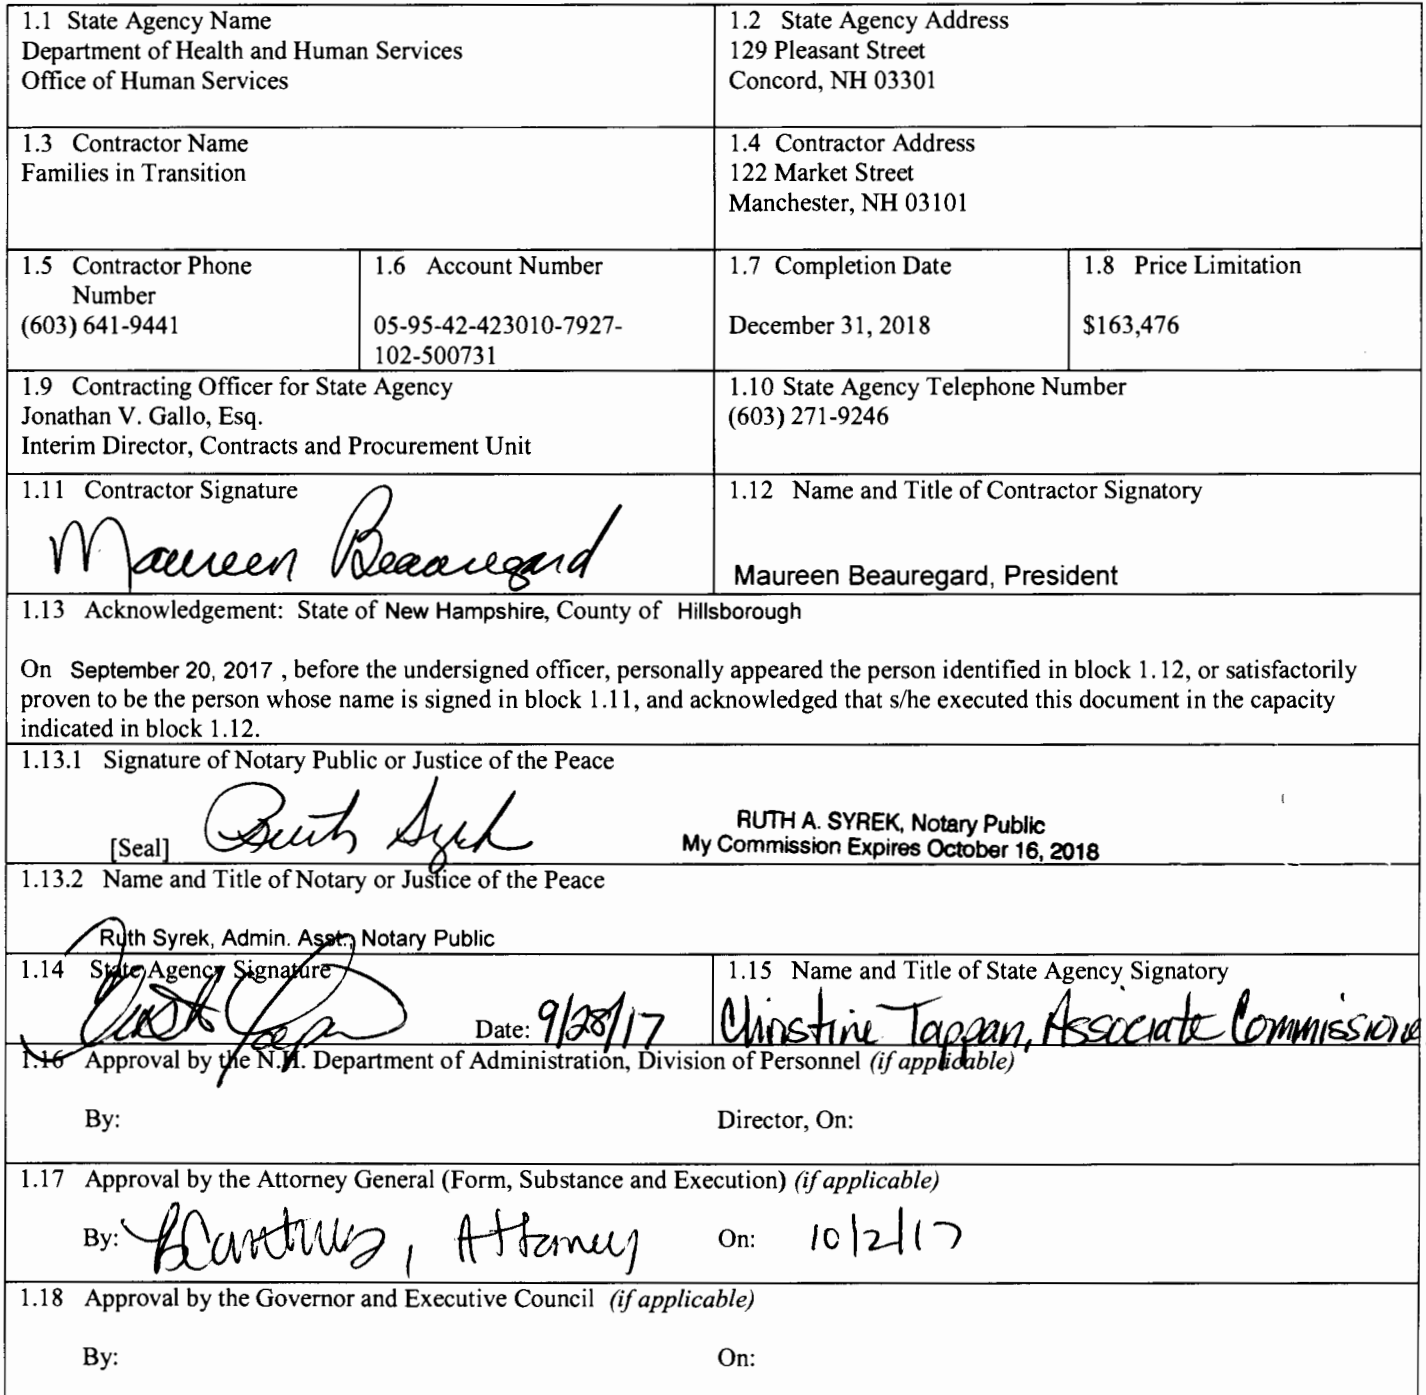 1.1 State Agency Name
Department of Health and Human Services
Office of Human Services
1.2 State Agency Address
129 Pleasant Street
Concord, NH 03301
1.3 Contractor Name
Families in Transition
1.4 Contractor Address
122 Market Street
Manchester, NH 03101
1.5 Contractor Phone
Number
(603) 641-9441
1.6 Account Number
05-95-42-423010-7927-
102-500731
1.7 Completion Date
December 31, 2018
1.8 Price Limitation
$163,476
1.9 Contracting Officer for State Agency
Jonathan V. Gallo, Esq.
Interim Director, Contracts and Procurement Unit
1.10 State Agency Telephone Number
(603) 271-9246
1.11 Contractor Signature
Maureen Beauregard
1.12 Name and Title of Contractor Signatory
Maureen Beauregard, President
1.13 Acknowledgement: State of New Hampshire, County of Hillsborough
On September 20, 2017 , before the undersigned officer, personally appeared the person identified in block 1.12, or satisfactorily
proven to be the person whose name is signed in block 1.11, and acknowledged that s/he executed this document in the capacity
indicated in block 1.12.
1.13.1 Signature of Notary Public or Justice of the Peace
[Seal] Ruth Syrek
RUTH A. SYREK, Notary Public
My Commission Expires October 16, 2018
1.13.2 Name and Title of Notary or Justice of the Peace
Ruth Syrek, Admin. Asst., Notary Public
1.14 State Agency Signature
Date: 9/28/17
1.15 Name and Title of State Agency Signatory
Christine Tappan, Associate Commissione
1.16 Approval by the N.H. Department of Administration, Division of Personnel (if applicable)
By: Director, On:
1.17 Approval by the Attorney General (Form, Substance and Execution) (if applicable)
By: , Attorney On: 10/2/17
1.18 Approval by the Governor and Executive Council (if applicable)
By: On: